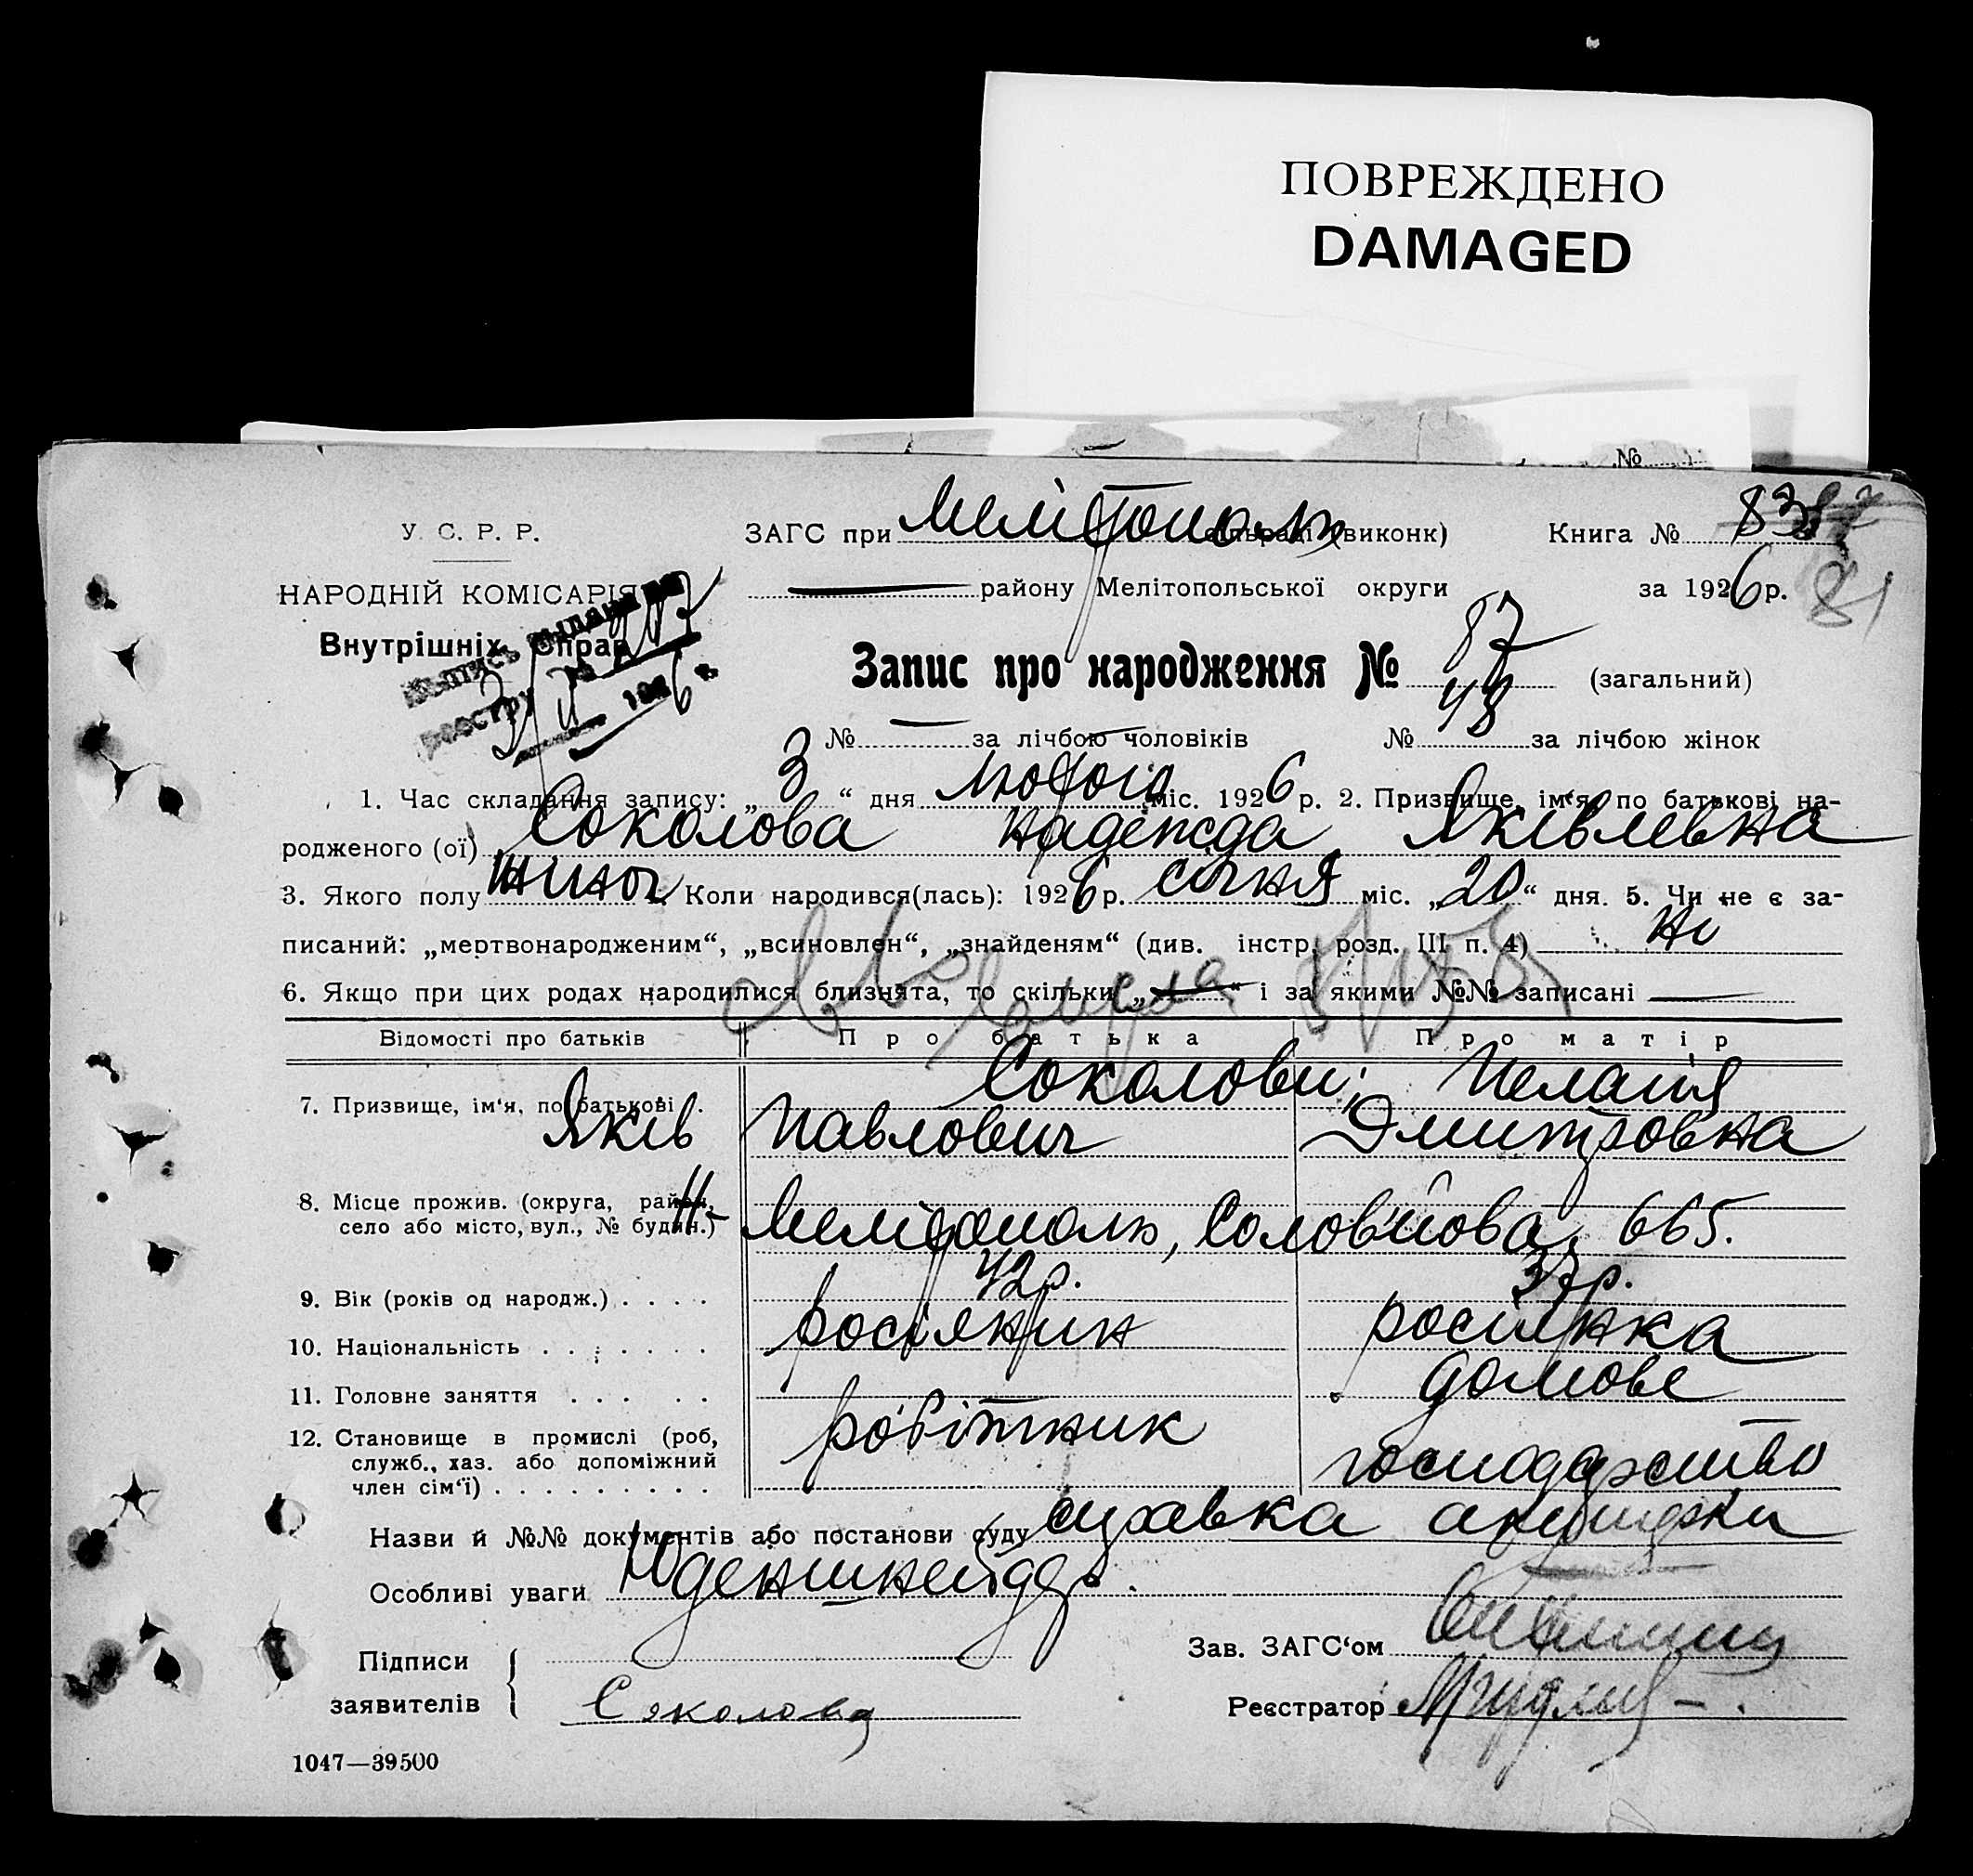 ПОВРЕЖДЕНО
DAMAGED
№
У. С. Р. Р.
ЗАГС при Мелітополь сільраді (виконк)
Книга № 83
НАРОДНІЙ КОМІСАРІЯ
району Мелітопольської округи
за 1926 р. 81
Внутрішніх Справ
реєстру № 207
3/II 1926 р.
Запис про народження № 87 (загальний)
№ — за лічбою чоловіків № 48 за лічбою жінок
1. Час складання запису: „3“ дня лютого міс. 1926 р. 2. Призвище, ім‘я, по батькові на-
родженого (ої) Соколова Надежда Яківлевна
3. Якого полу жіноч. Коли народився(лась): 1926 р. січня міс. „20“ дня. 5. Чи не є за-
писаний: „мертвонародженим“, „всиновлен“, „знайденям“ (див. інстр. розд. III п. 4) ні
6. Якщо при цих родах народилися близнята, то скільки „—“ і за якими №№ записані —
Відомості про батьків Про батька Про матір
7. Призвище, ім‘я, по батькові . Соколови; Пелагія
Яків Павлович Дмитровна
8. Місце прожив. (округа, район,
село або місто, вул., № будин.) Н-Мелітополь, Соловйова, 665.
9. Вік (років од народж.) . . . . 42 р. 37 р.
10. Національність . . . . . . . росіянин росіянка
11. Головне заняття . . . . . домове
12. Становище в промислі (роб, робітник
служб., хаз. або допоміжний господарство
член сім‘ї) . . . . . . . . .
Назви й №№ документів або постанови суду справка акушерки
Особливі уваги Юденшнейдер.
Підписи
заявителів Соколова
Зав. ЗАГС‘ом
Реєстратор
1047—39500